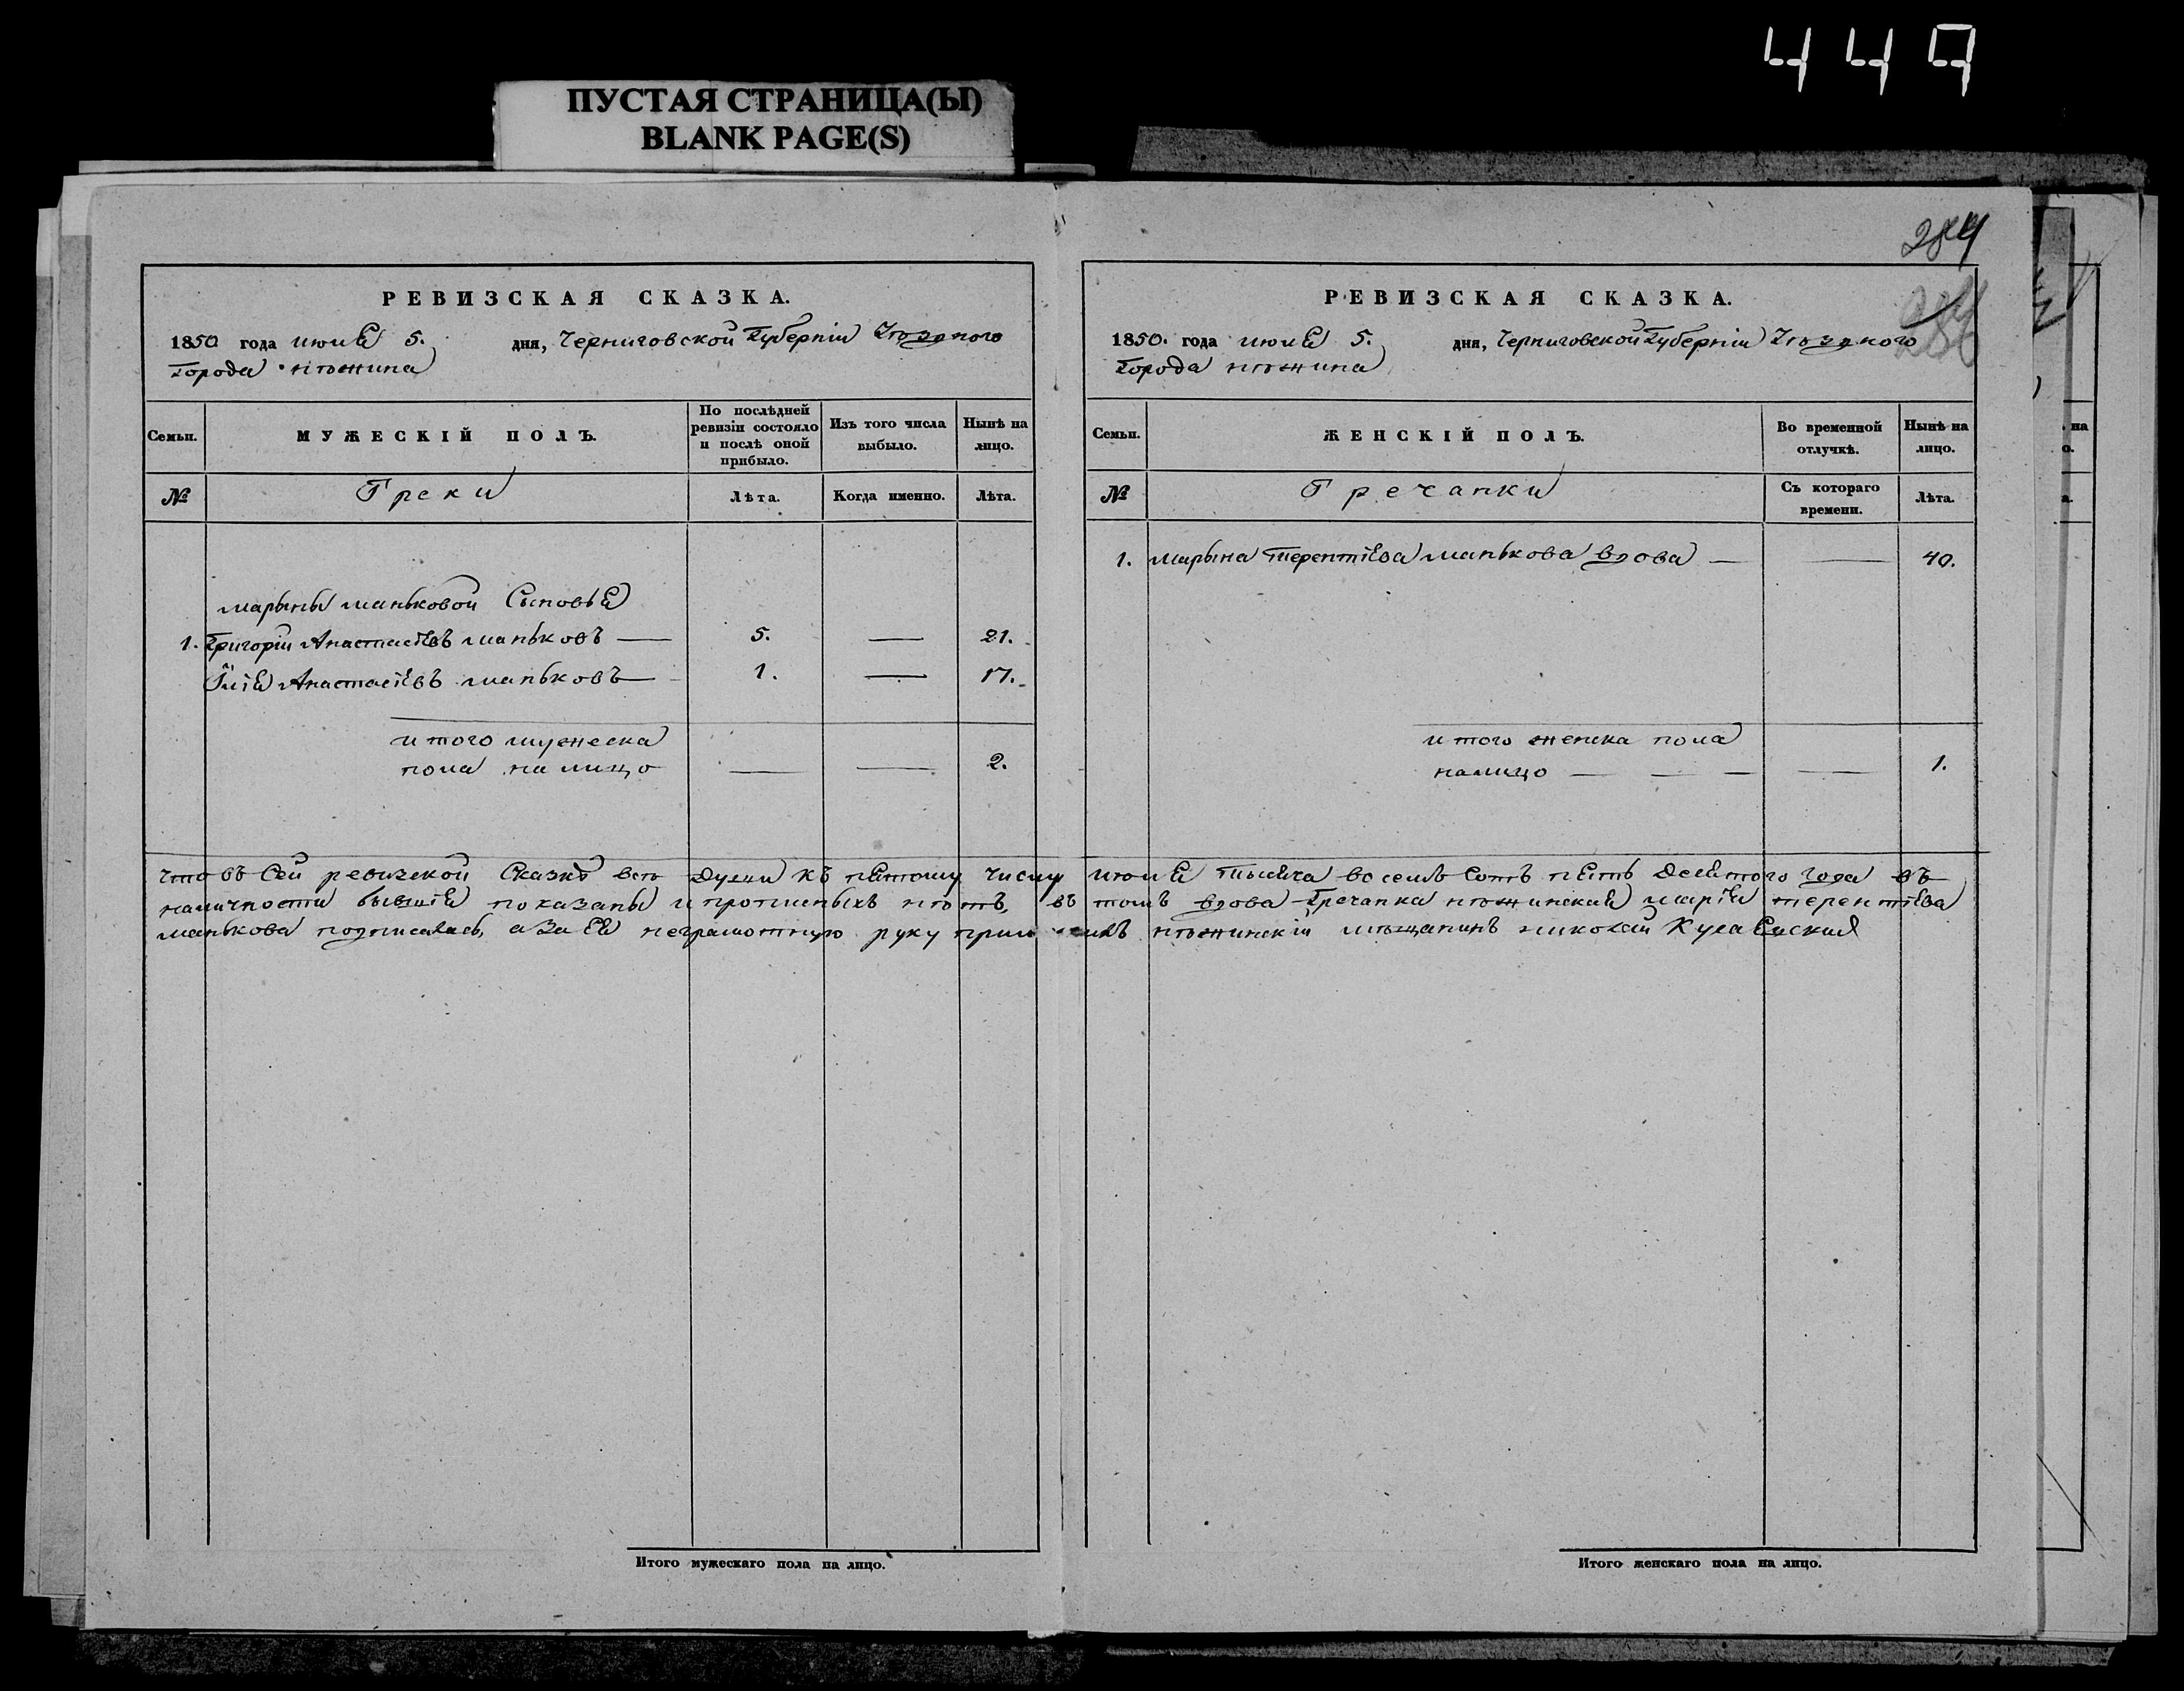 449
ПУСТАЯ СТРАНИЦА(Ы)
BLANK PAGE(S)
284
РЕВИЗСКАЯ СКАЗКА.
1850 года июля 5. дня, Черниговской Губерніи Уѣздного
Города нѣжина
Семьи.
МУЖЕСКІЙ ПОЛЪ.
По послѣдней ревизіи состояло и послѣ оной прибыло.
Изъ того числа выбыло.
Нынѣ на лицо.
№
Греки
Лѣта.
Когда именно.
Лѣта.
марыны маньковой Сыновья
1. Григорій Анастасіевъ маньковъ — 5. — 21.
Илія Анастасіевъ маньковъ — 1. — 17.
итого мужеска
пола на лицо — — 2.
РЕВИЗСКАЯ СКАЗКА.
1850. года июля 5. дня, Черниговской Губерніи Уѣздного
Города нѣжина
Семьи.
ЖЕНСКІЙ ПОЛЪ.
Во временной отлучкѣ.
Нынѣ на лицо.
№
Гречанки
Съ котораго времени.
Лѣта.
1. марына терентіева манькова вдова — — 40.
итого женска пола
налицо — — — — 1.
что въ Сей ревизской Сказкѣ всѣ души къ пятому числу июля тысяча восемь Сотъ пять десятого года въ
наличности бывшія показаны и прописныхъ нѣтъ, въ томъ вдова Гречанка нѣжинская марія терентіева
манькова подписалась, а За Ея неграмотную руку прило жилъ нѣжинскій мѣщанинъ николай
Итого мужескаго пола на лицо.
Итого женскаго пола на лицо.